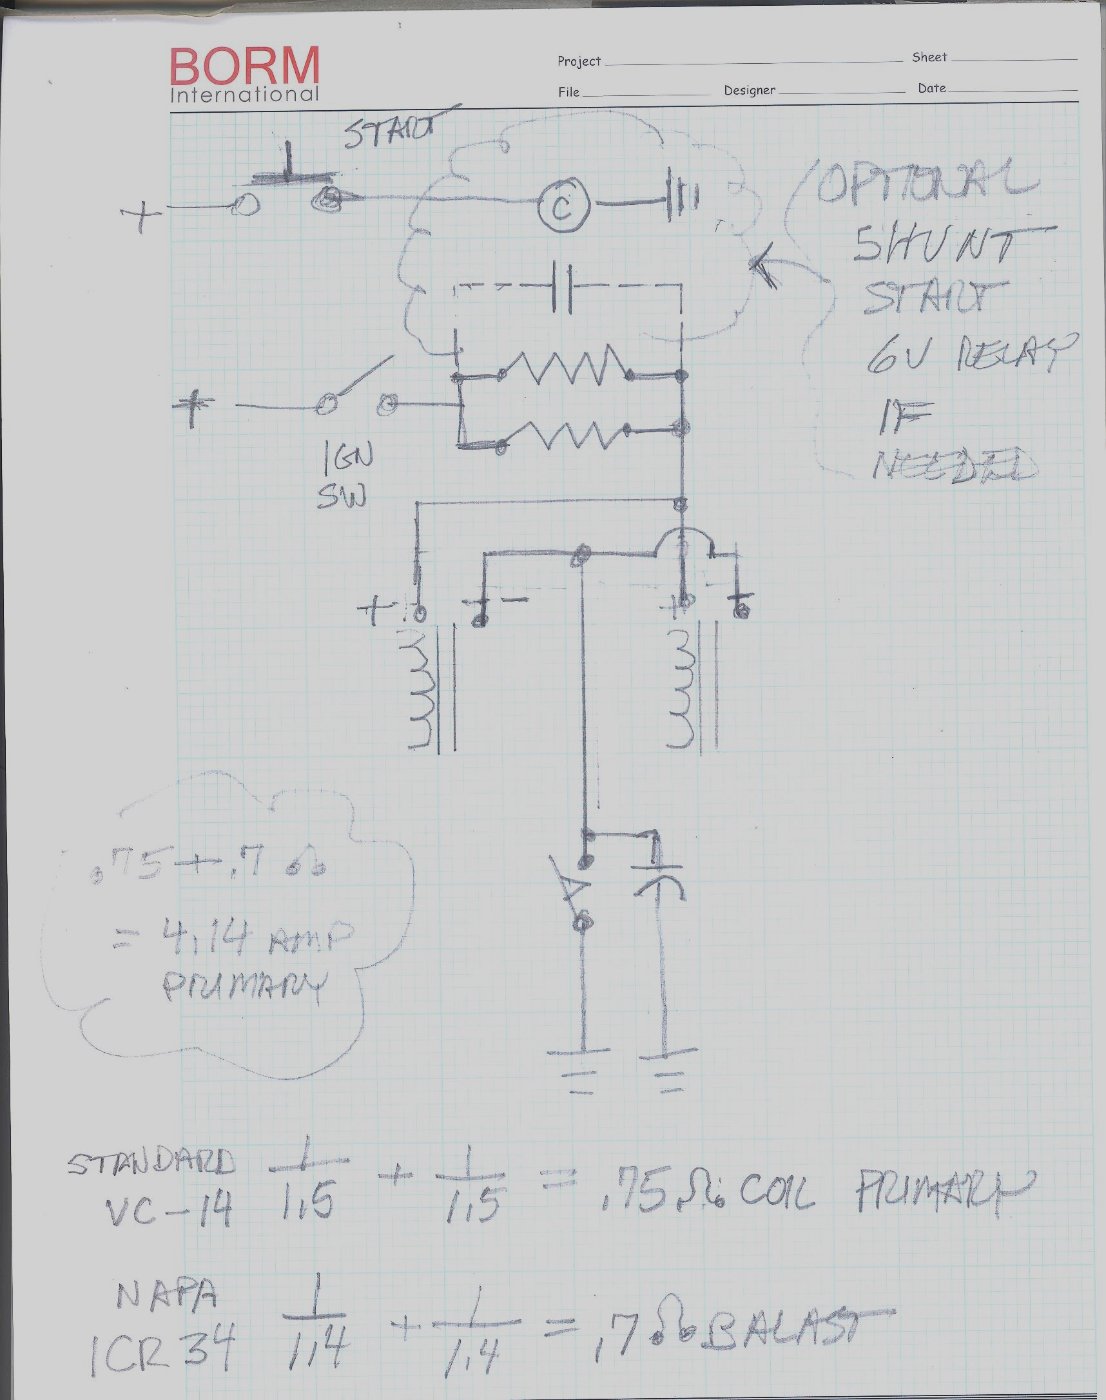 BORM
International
Project
Sheet
File
Designer
Date
START
+
C
OPTIONAL
SHUNT
START
6V RELAY
IF
NEEDED
+
IGN
SW
+ - + -
.75 + .7 Ω
= 4.14 AMP
PRIMARY
STANDARD
VC-14
1/1.5 + 1/1.5 = .75 Ω COIL PRIMARY
NAPA
ICR 34
1/1.4 + 1/1.4 = .7 Ω BALAST